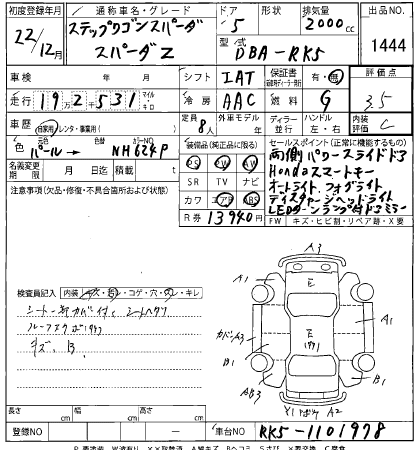 初度登録年月 通称車名・グレード ドア 形状 排気量 出品NO.
22/12月 ステップワゴンスパーダ スパーダZ 5 2000cc 1444
型式 DBA-RK5
車検 年 月 シフト IAT 保証書 有・無 評価点
走行 19万2千531 マイル キロ 冷房 AAC 燃料 G 3.5
車歴 自家用・レンタ・事業用( ) 定員 8人 外車モデル 年 ディーラー 並行 ハンドル 左・右 内装評価 C
色 元色 パール→ 色替 カラーNO NH624P 装備品(純正品に限る) セールスポイント(正常に機能するもの)
PS PW AW 両側パワースライドドア
名義変更期限 月 日迄 積載 t SR TV ナビ Hondaスマートキー
注意事項(欠品・修復・不具合箇所および状態) カワ エアB ABS オートライト、フォグライト
R券 13940円 ディスチャージヘッドライト
LEDターンランプ付ドアミラー
FW キズ・ヒビ割・リペア跡・X要
検査員記入 内装=キズ・汚レ・コゲ・穴・スレ・キレ
シート
キズ、B
A3
A1
E
A1
E
B1
B1
AB3
A2
長さ cm 幅 cm 高さ cm
登録NO — 車台NO RK5-1101978